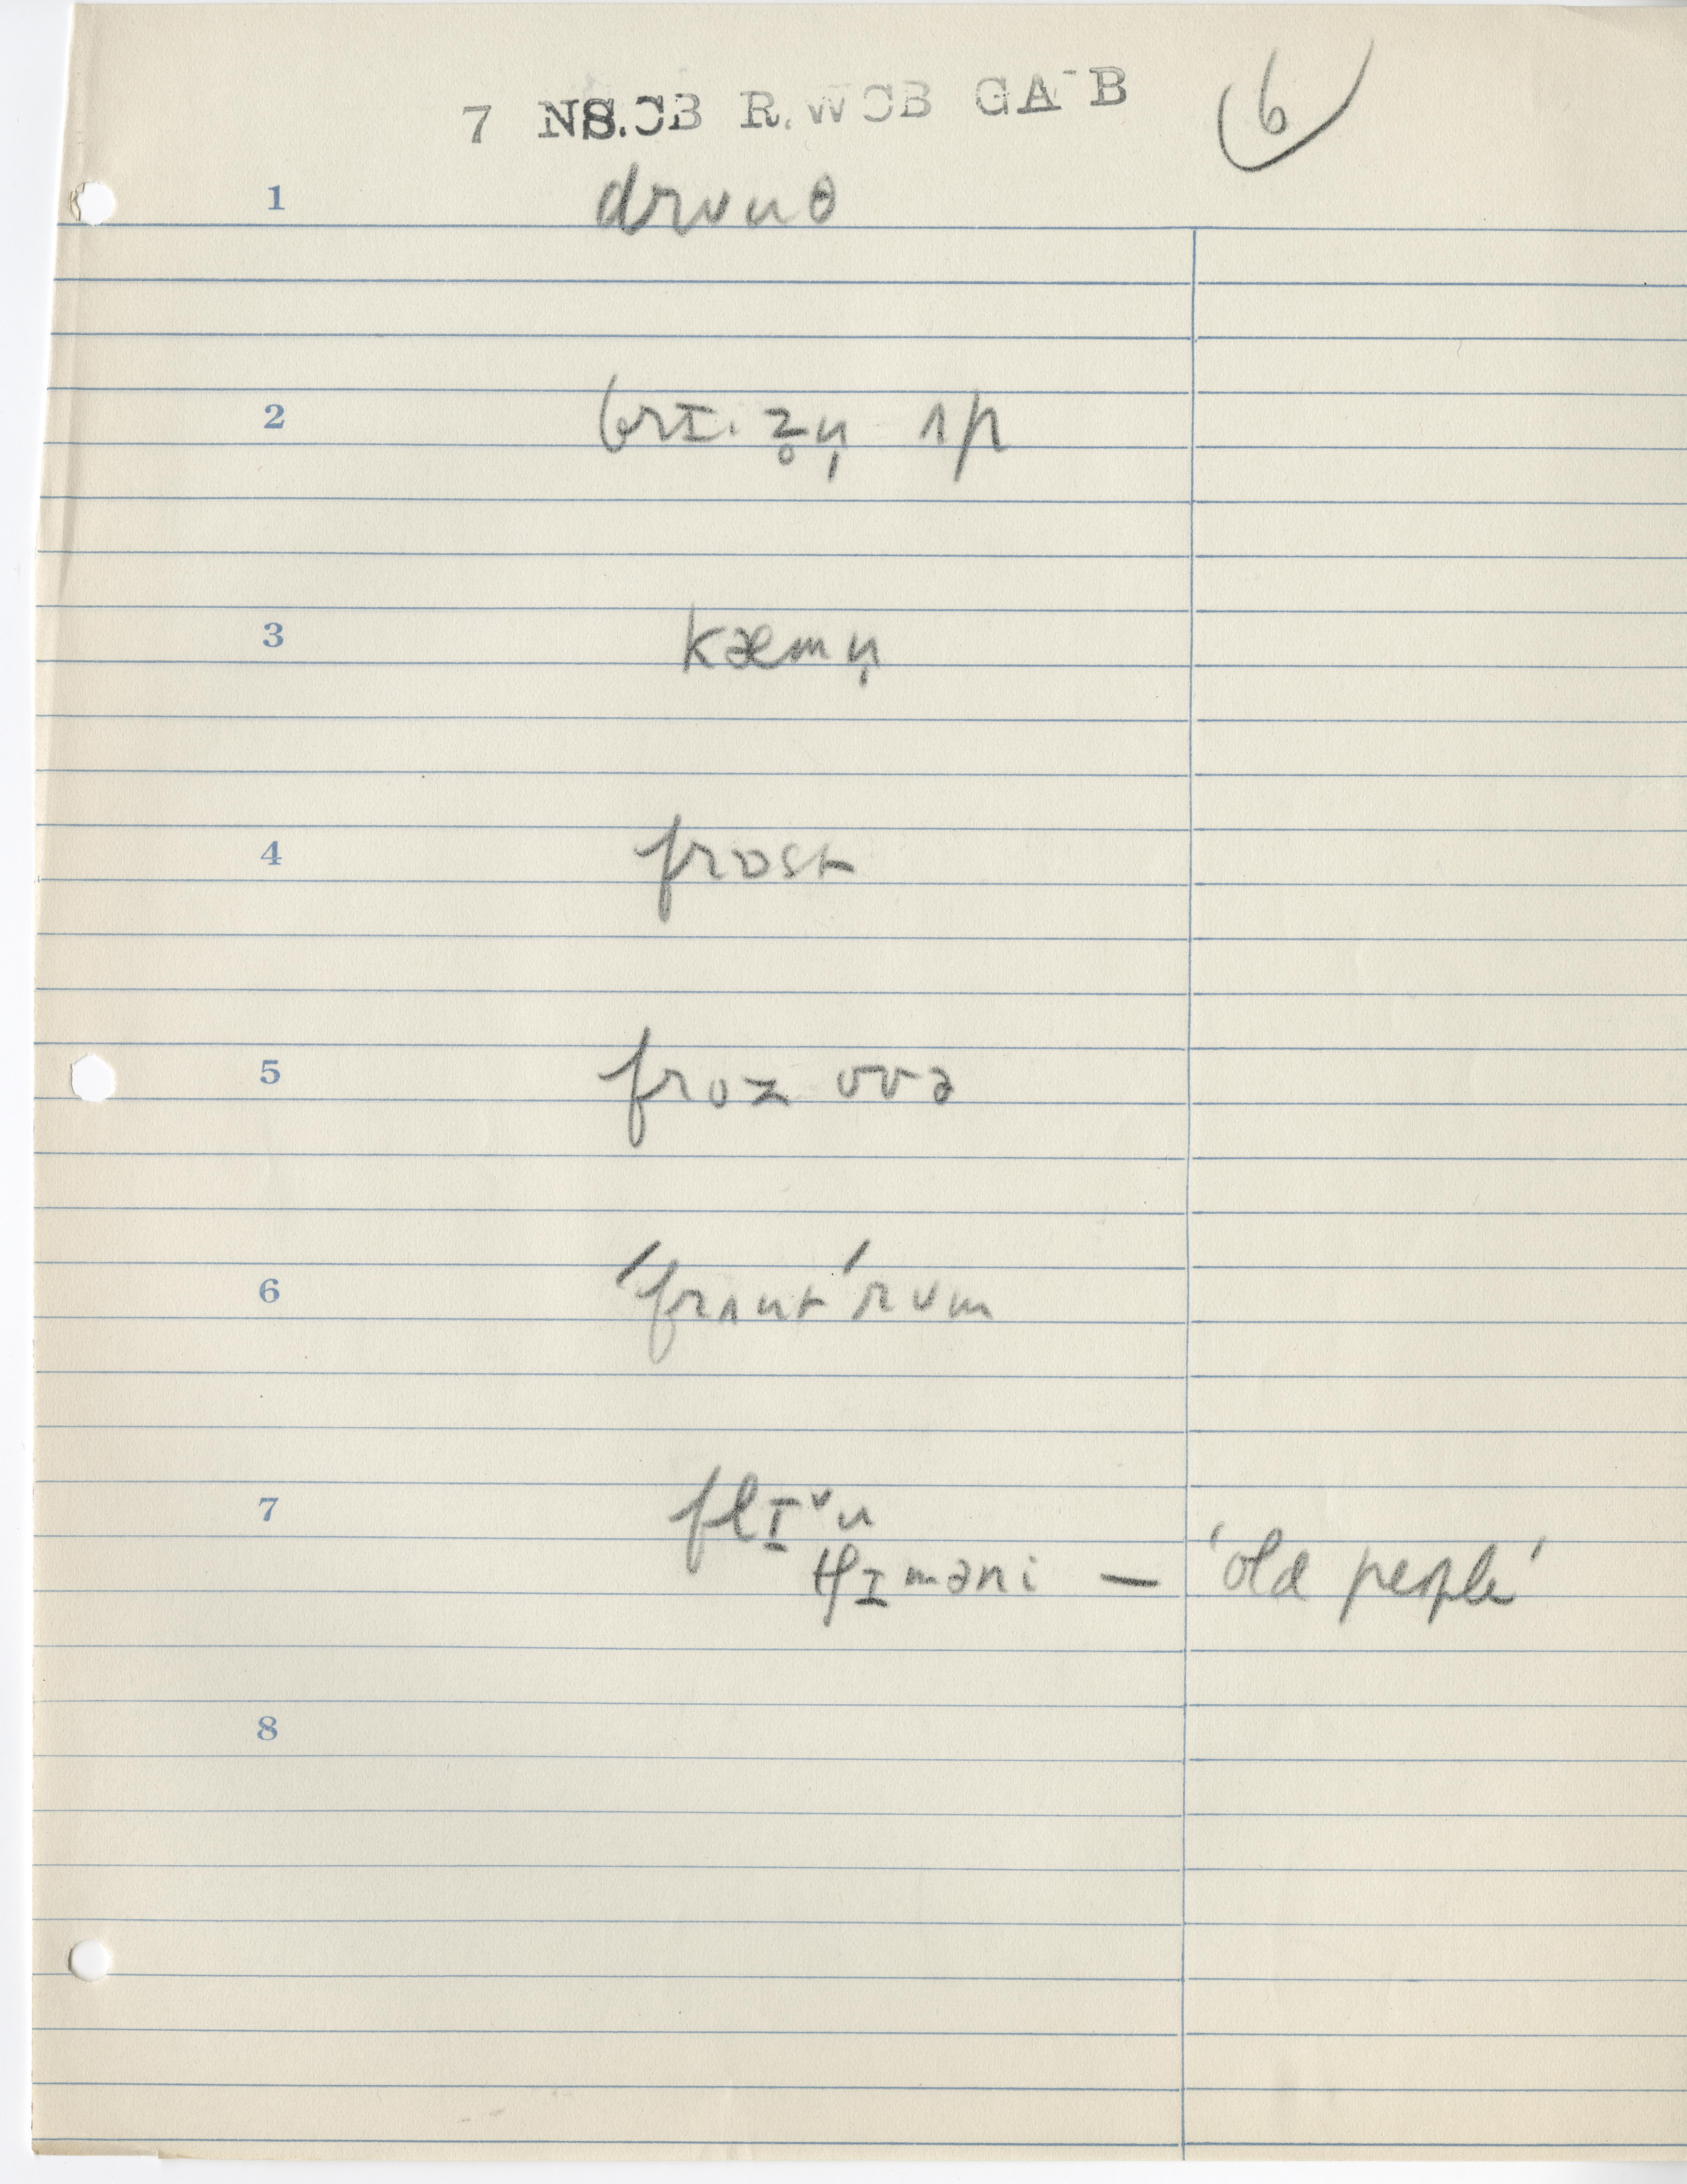 7 NS.CB R.WCB GA-B 6
1 drʋuθ
2 brɪ. z̥n̩ ʌp
3 kæmn̩
4 frɒst
5 froz ovə
6 'frʌnt 'rum
7 flɪˇu
ʧɪməni — 'old people'
8